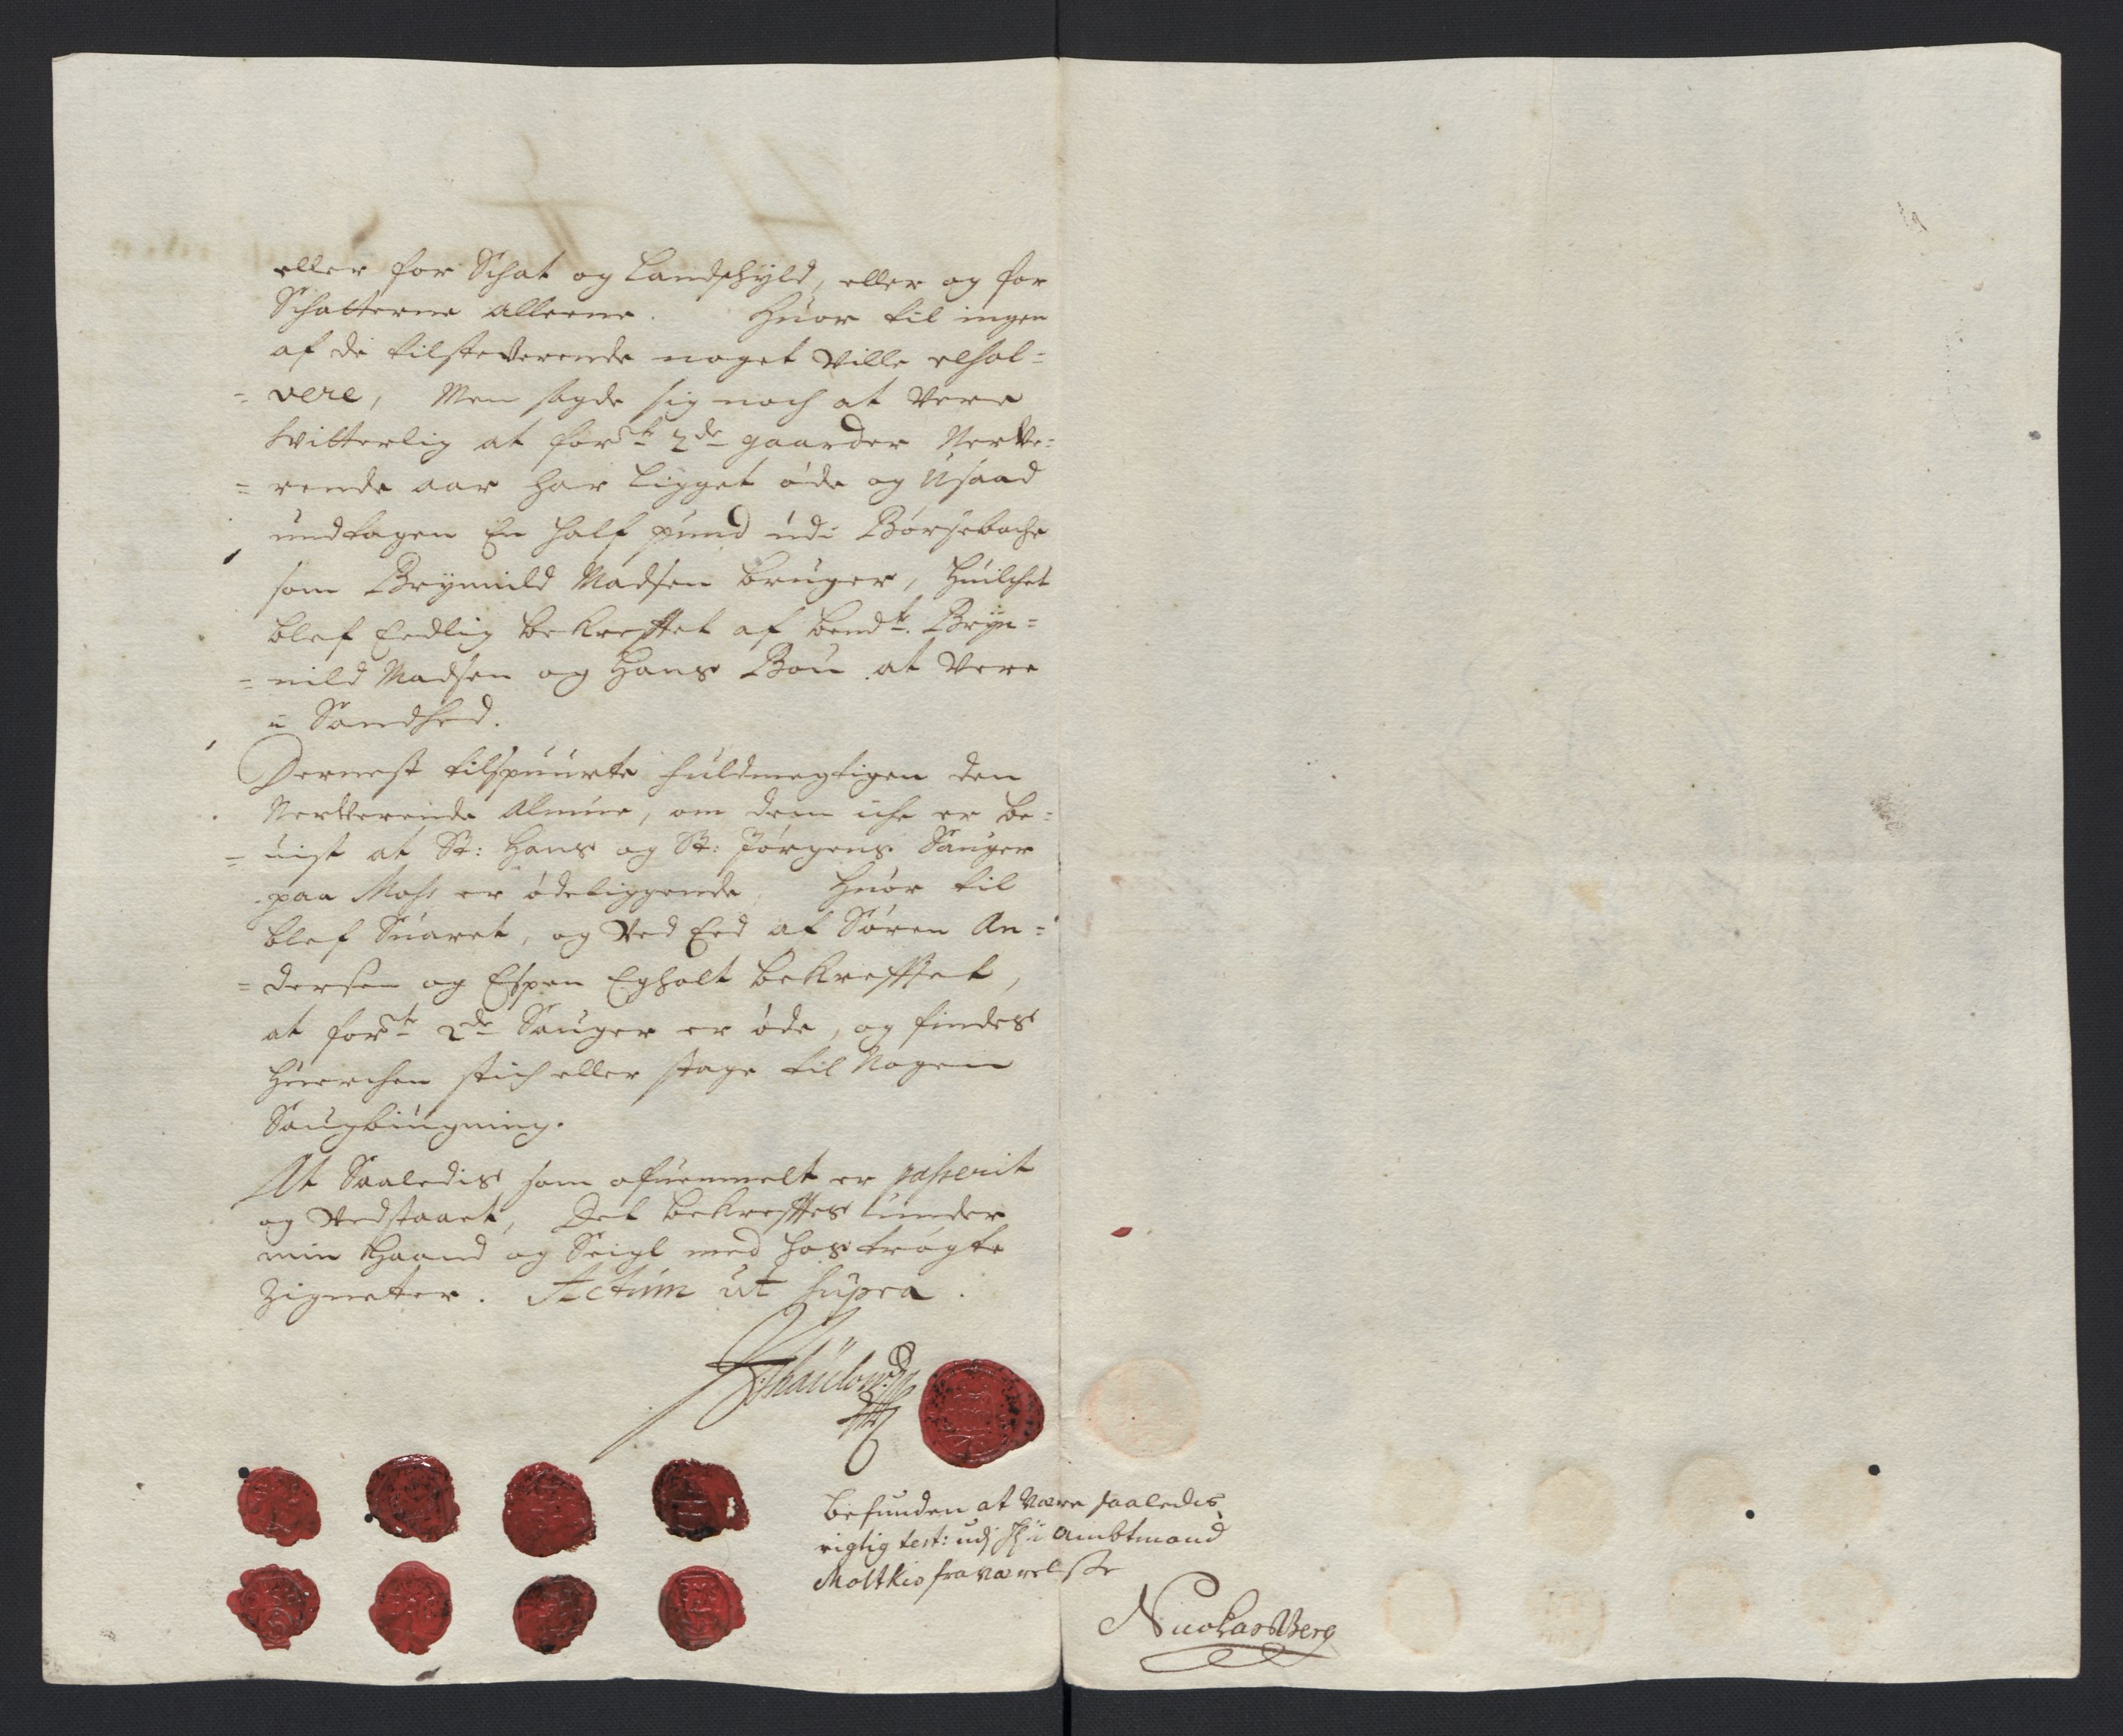 eller for Schat og Landschÿld, eller og for
Schatterne alleene. Huor til ingen
af de tilsteverende noget ville resol=
=vere, Men sagde sig noch at vere
Vitterlig at forskr: 2de gaarder Nerve=
=rende aar har Ligget øde og Usaad
undtagen En half pund udi Børsebache
som Brÿnnild Madsen bruger, huilchet
blef Eedlig bekrefftet af bemdte: Brÿn=
=nild Madsen og Hans Bou at vere
i Sandhed.
Dernest tilspuurte fuldmegtigen den
Nerverende Almue, om dem iche er be=
=uist at St: Hans og St: Jørgens Sauger
paa Moss er ødeliggende, Huor til
blef Suaret, og Ved Eed af Søren An=
=dersen og Espen Egholt bekrefftet,
at forskr: 2de Sauger er øde, og findes
huerchen stich eller stage til Nogen
Saugbÿugning.
At Saaledis som ofuenmelt er passerit
og Vedstaaet, Det bekrefftes under
min Haand og Seigl med hostrøgte
Zigneter. Actum ut supra.
befunden at være saaledis
rigtig test: udj Hr: Ambtmand
Moltkis fraværelse
Nicolas Berg